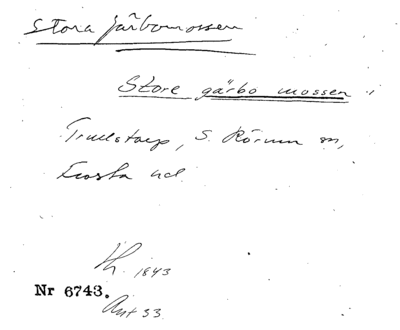 Stora Järbomossen
Store gärbo mossen
Trulstorp, S. Rörum sn,
Frosta hd.
1843
Nr 6743.
Ant 33